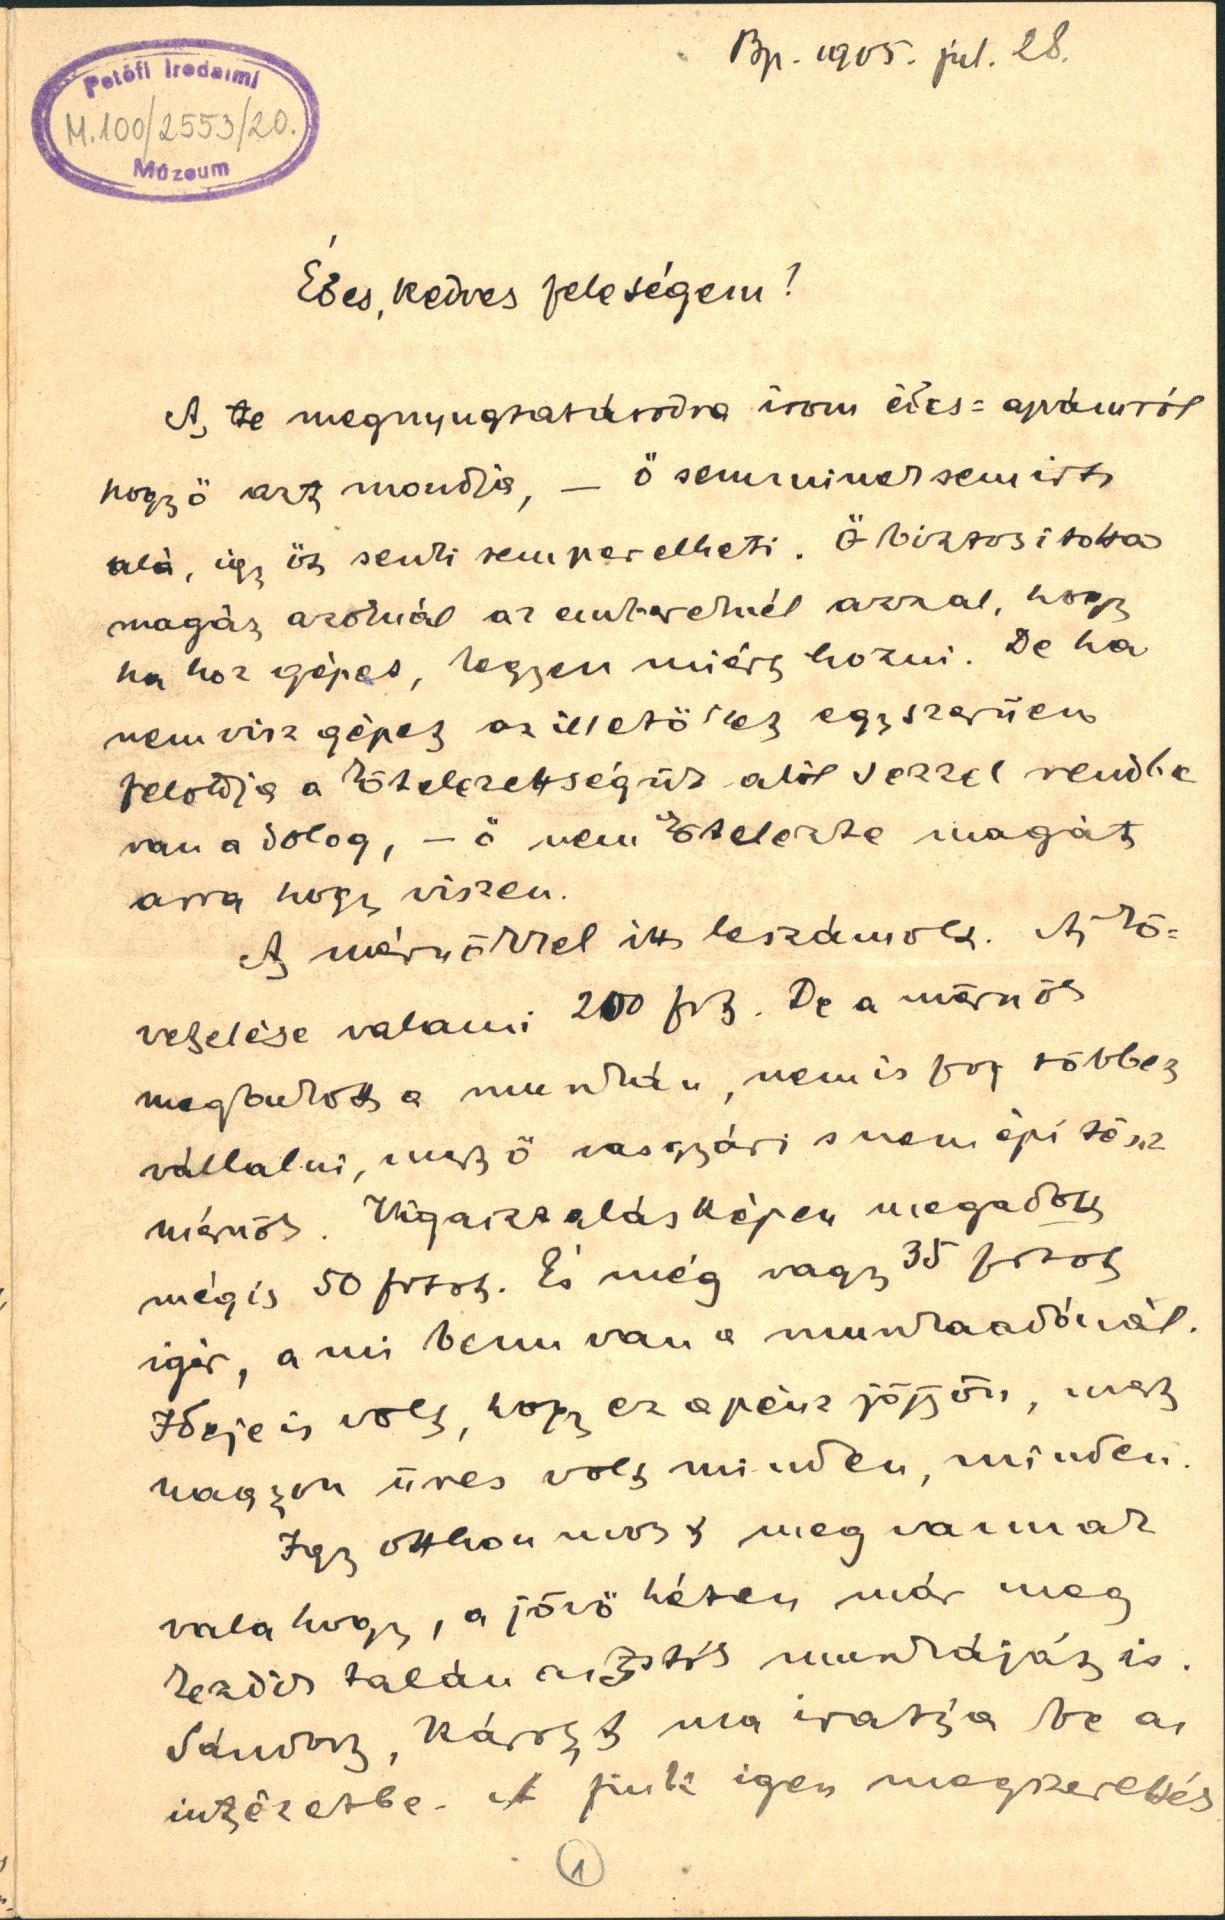 Bp. 1905. jul. 28.
Petőfi Irodalmi
M.100/2553/20.
Múzeum
Édes, kedves feleségem!
A te megnyugtatásodra irom édes=apámról
hogy ő azt mondja, — ő semminek sem irt
alá, igy őt senki sem perelheti. Ő biztositotta
magát azoknál az embereknél azzal, hogy
ha hoz gépet, legyen miért hozni. De ha
nem visz gépet az illetőket egyszerüen
feloldja a kötelezettségük alól s ezzel rendbe
van a dolog, — ő nem kötelezte magát
arra hogy viszen.
A mérnökkel itt leszámolt. A kö=
vetelése valami 200 frt. De a mérnök
megbukott a munkán, nem is fog többet
vállalni, mert ő vasgyári s nem épitész
mérnök. Vigasztalásképen megadott
mégis 50 frtot. És még vagy 35 frtot
igér, a mi benn van a munkaadónál.
Ideje is volt, hogy ez a pénz jöjjön, mert
nagyon üres volt minden, minden.
Igy otthon most meg vannak
valahogy, a jövő héten már meg
kezdik talán munkáját is.
Sándort, Károlyt ma iratja be az
intézetbe. A fiuk igen megszerették
1